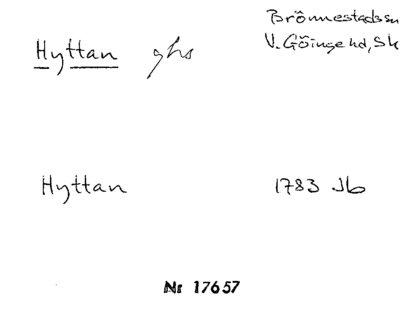 Brönnestadssn
Hyttan ghs V. Göinge hd, Sk
Hyttan 1783 Jb
Nr 17657